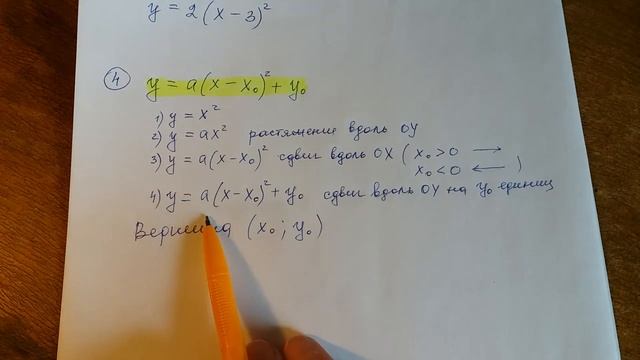 y = 2(x − 3)²
④ y = a(x − x₀)² + y₀
1) y = x²
2) y = ax² растяжение вдоль OY
3) y = a(x − x₀)² сдвиг вдоль OX ( x₀ > 0 →
x₀ < 0 ← )
4) y = a(x − x₀)² + y₀ сдвиг вдоль OY на y₀ единиц
Вершина (x₀ ; y₀)